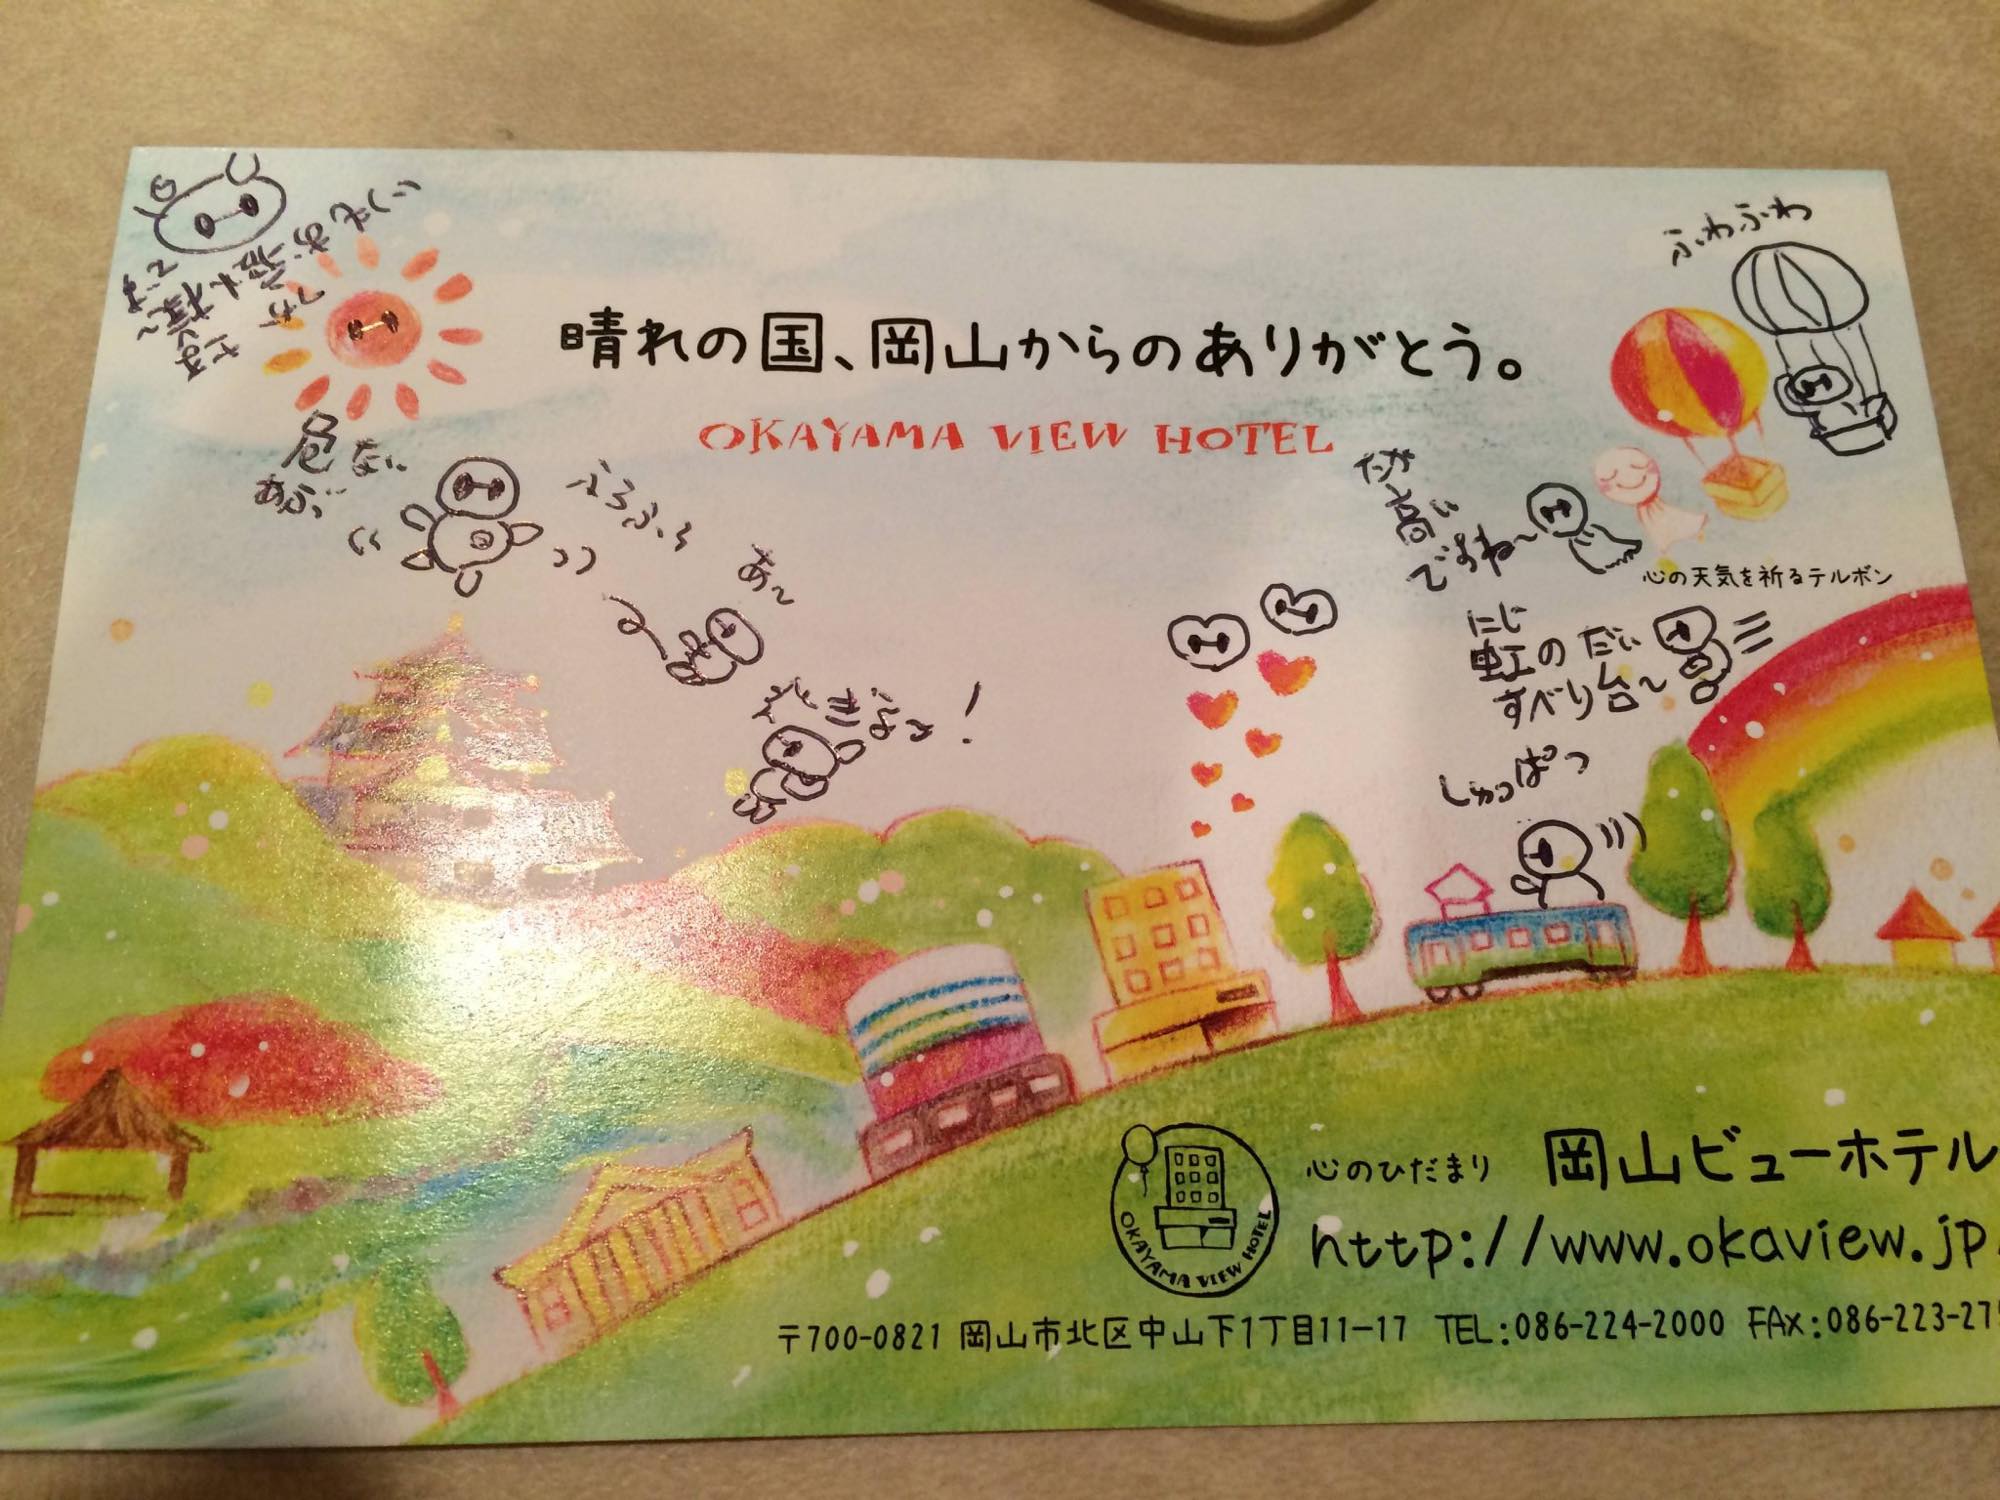 ふわふわ
晴れの国、岡山からのありがとう。
OKAYAMA VIEW HOTEL
危ない
あぶ
たか
高い
ですね〜
心の天気を祈るテルボン
にじ
虹の だい
すべり台〜
しゅっぱつ
心のひだまり 岡山ビューホテル
http://www.okaview.jp
OKAYAMA VIEW HOTEL
〒700-0821 岡山市北区中山下1丁目11-17 TEL:086-224-2000 FAX:086-223-27